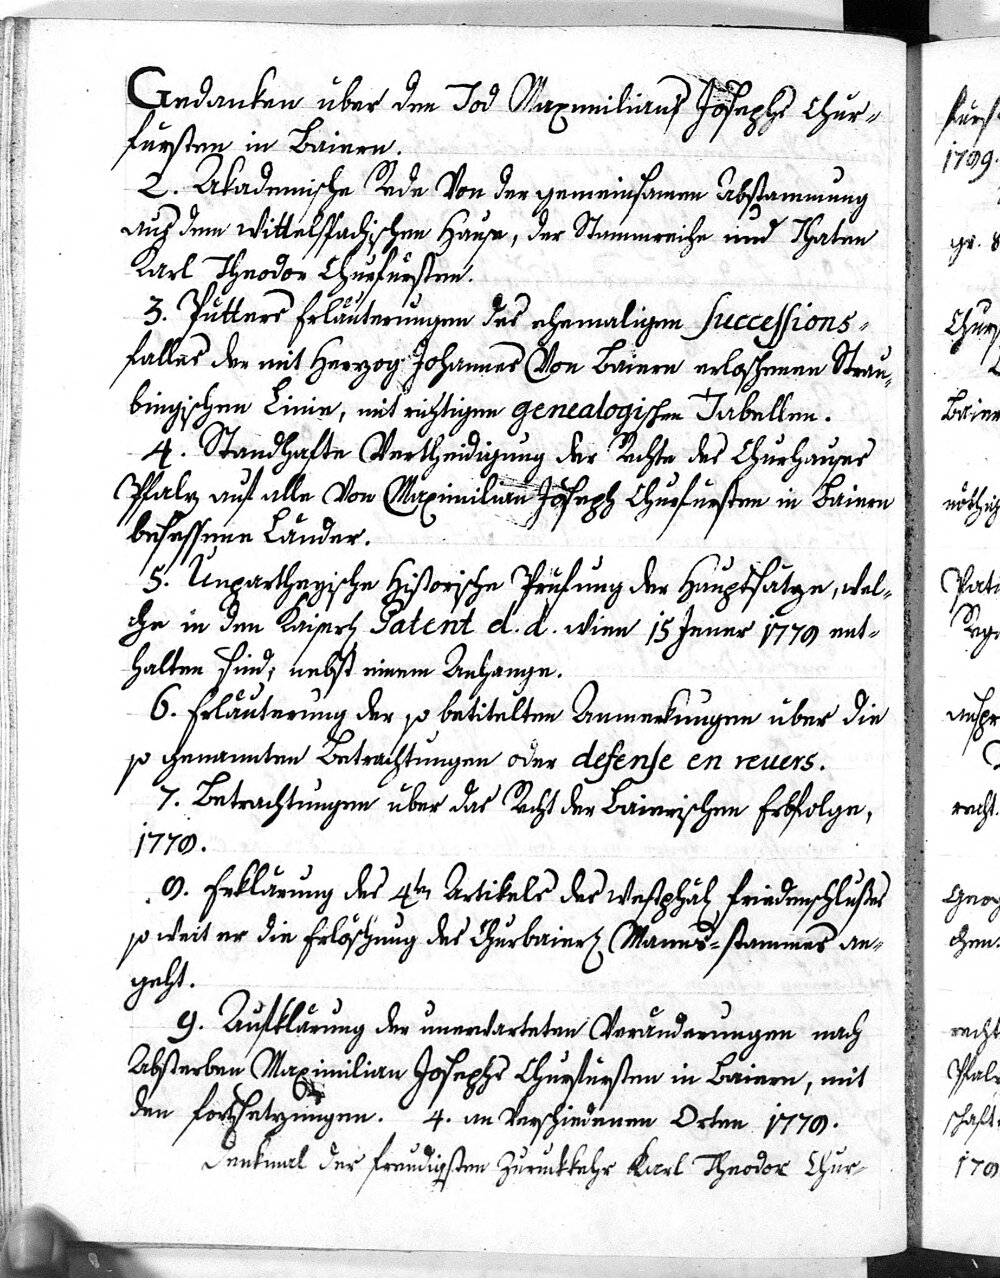 Gedanken über den Tod Maximilians Josephs Chur-
fürsten in Baiern.
2. Akademische Rede Von der gemeinsamen Abstammung
aus dem Wittelspachischen Hause, der Stammreihe und Thaten
Karl Theodor Churfürsten.
3. Pütters Erläuterungen des ehemaligen Successions-
falles der mit Herzog Johannes Von Baiern erloschenen Strau-
bingischen Linie, mit richtigen genealogischen Tabellen.
4. Standhafte Vertheidigung der Rechte des Churhauses
Pfalz auf alle Von Maximilian Joseph Churfürsten in Baiern
besessene Länder.
5. Unpartheyische Historische Prüfung der Hauptsätze, wel-
che in den Kaiserl. Patent d. d. Wien 15 Jener 1778 ent-
halten sind; nebst einem Anhange.
6. Erläuterung der so betitelten Anmerkungen über die
so genannten Betrachtungen oder defense en revers.
7. Betrachtungen über das Recht der Baierischen Erbfolge,
1778.
8. Erklärung des 4ten Artikels des Westphäl. friedenschlußes
so weit er die Erlöschung des Churbaierl. Manns-stammes an-
geht.
9. Aufklärung der unerwarteten Veränderungen nach
Absterben Maximilian Josephs Churfürsten in Baiern, mit
den fortsetzungen. 4. an Verschiedenen Orten 1778.
Denkmal der freudigsten Zuruckkehr Karl Theodor Chur-